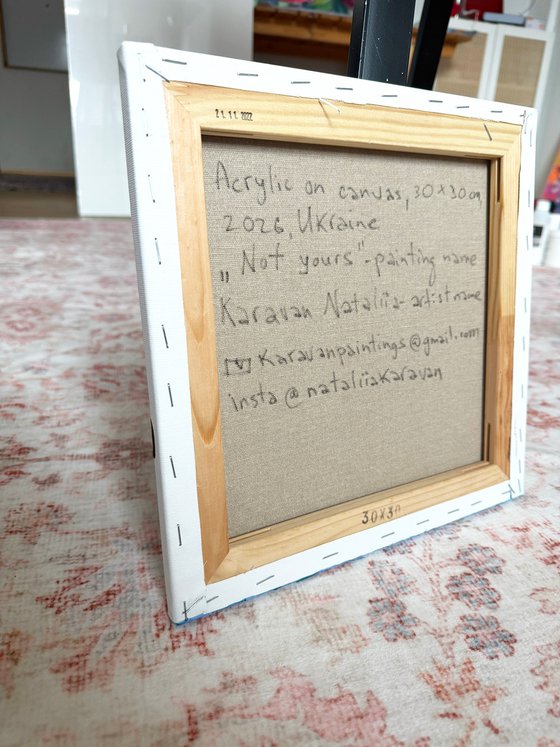 21.11.2022
Acrylic on canvas, 30x30cm,
2026, Ukraine
„Not yours"-painting name
Karavan Nataliia-artist name
Karavanpaintings@gmail.com
insta @nataliiakaravan
30X30